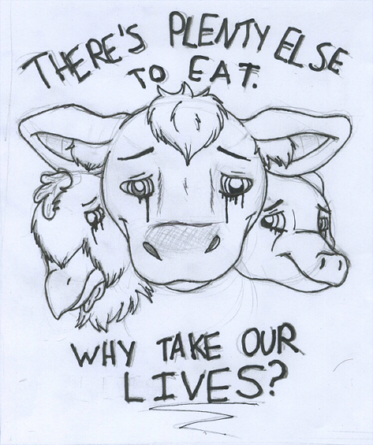 THERE'S PLENTY ELSE
TO EAT.
WHY TAKE OUR
LIVES?